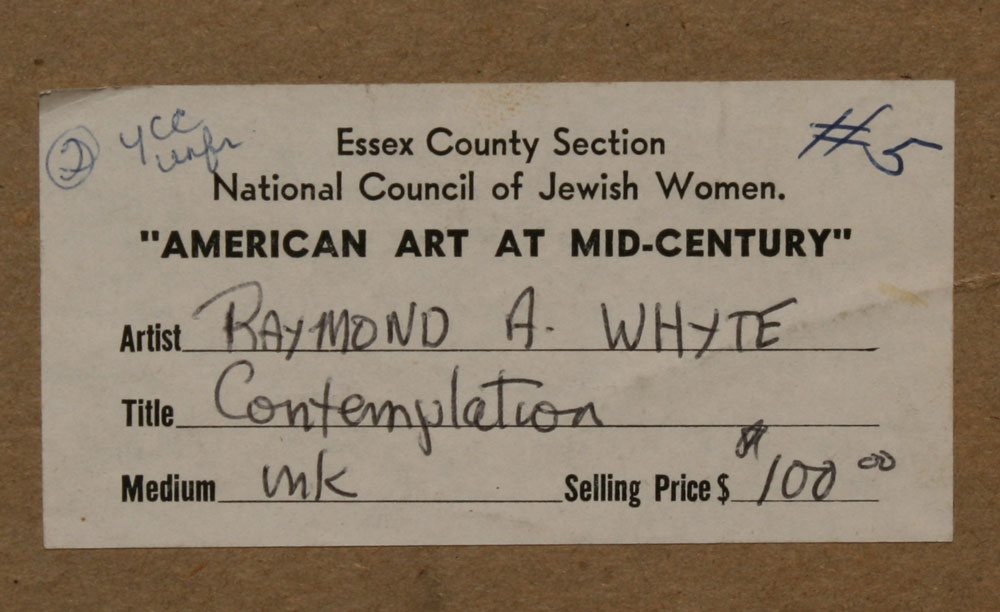 ② ycc
#5
Essex County Section
National Council of Jewish Women.
"AMERICAN ART AT MID-CENTURY"
Artist RAYMOND A. WHYTE
Title Contemplation
Medium ink Selling Price $ $100 00